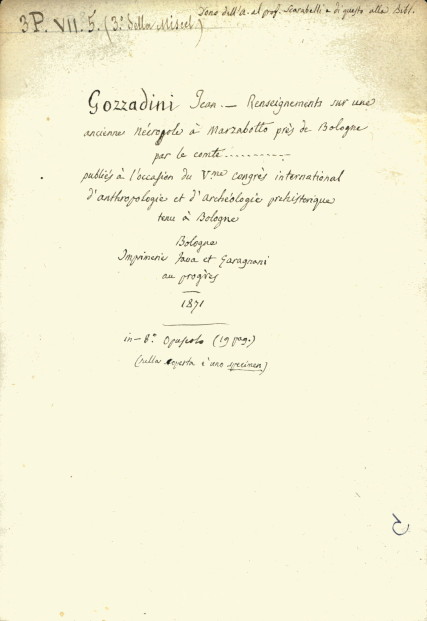 3P. VII. 5. (3.º della Miscel.)
Dono dell'A. al prof. Scarabelli e di questo alla Bibl.
Gozzadini Jean. — Renseignements sur une
ancienne nécropole à Marzabotto près de Bologne
par le comte ------------
publiés à l'occasion du Vme congrès international
d'anthropologie et d'archéologie préhistorique
tenu à Bologne
Bologne
Imprimerie Fava et Garagnani
au progrès
1871
in-8.º Opuscolo (19 pag.)
(sulla coperta è uno specimen)